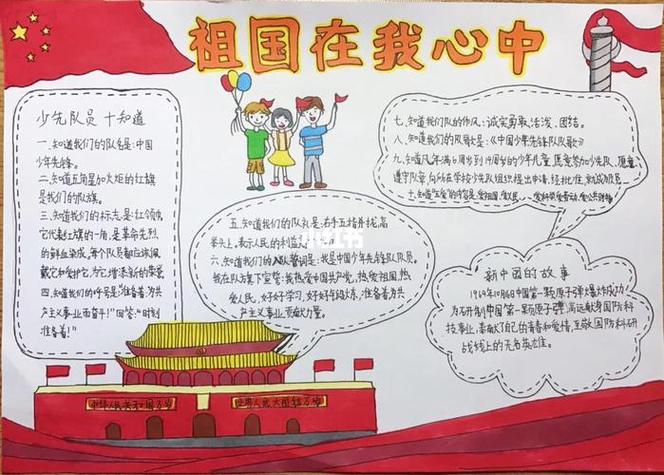 祖国在我心中
少先队员 十知道
一、知道我们的队名是：中国
少年先锋。
二、知道五角星加火炬的红旗
是我们的队旗。
三、知道我们的标志是：红领巾
它代表红旗的一角，是革命先烈
的鲜血染成，每个队员都应该佩
戴它和爱护它，为它增添新的荣誉
四、知道我们的呼号是：“准备着！为共
产主义事业而奋斗！”回答：“时刻
准备着！”
五、知道我们的队礼是：右手五指并拢，高
举头上。表示人民的利益
六、知道我们的入队誓词是：我是中国少年先锋队队员。
我在队旗下宣誓：我热爱中国共产党，热爱祖国，热
爱人民，好好学习，好好锻炼，准备着为共
产主义事业，贡献力量。
七、知道我们队的作风：诚实、勇敢、活泼、团结。
八、知道我们的队歌是：《中国少年先锋队队歌》
九、知道凡年满6周岁到14周岁的少年儿童，愿意参加少先队，愿意
遵守队章，向所在学校少先队组织提出申请，经批准，就成为队员
十、知道“五爱”的内容是：爱祖国、爱人民、爱科学、爱劳动、爱公共财物
新中国的故事
1964年10月16日中国第一颗原子弹爆炸成功
为研制中国第一颗原子弹，满远献身国防科
技事业，奉献了自己的青春和爱情，至敬国防科研
战线上的无名英雄。
中华人民共和国万岁
世界人民大团结万岁
小红书